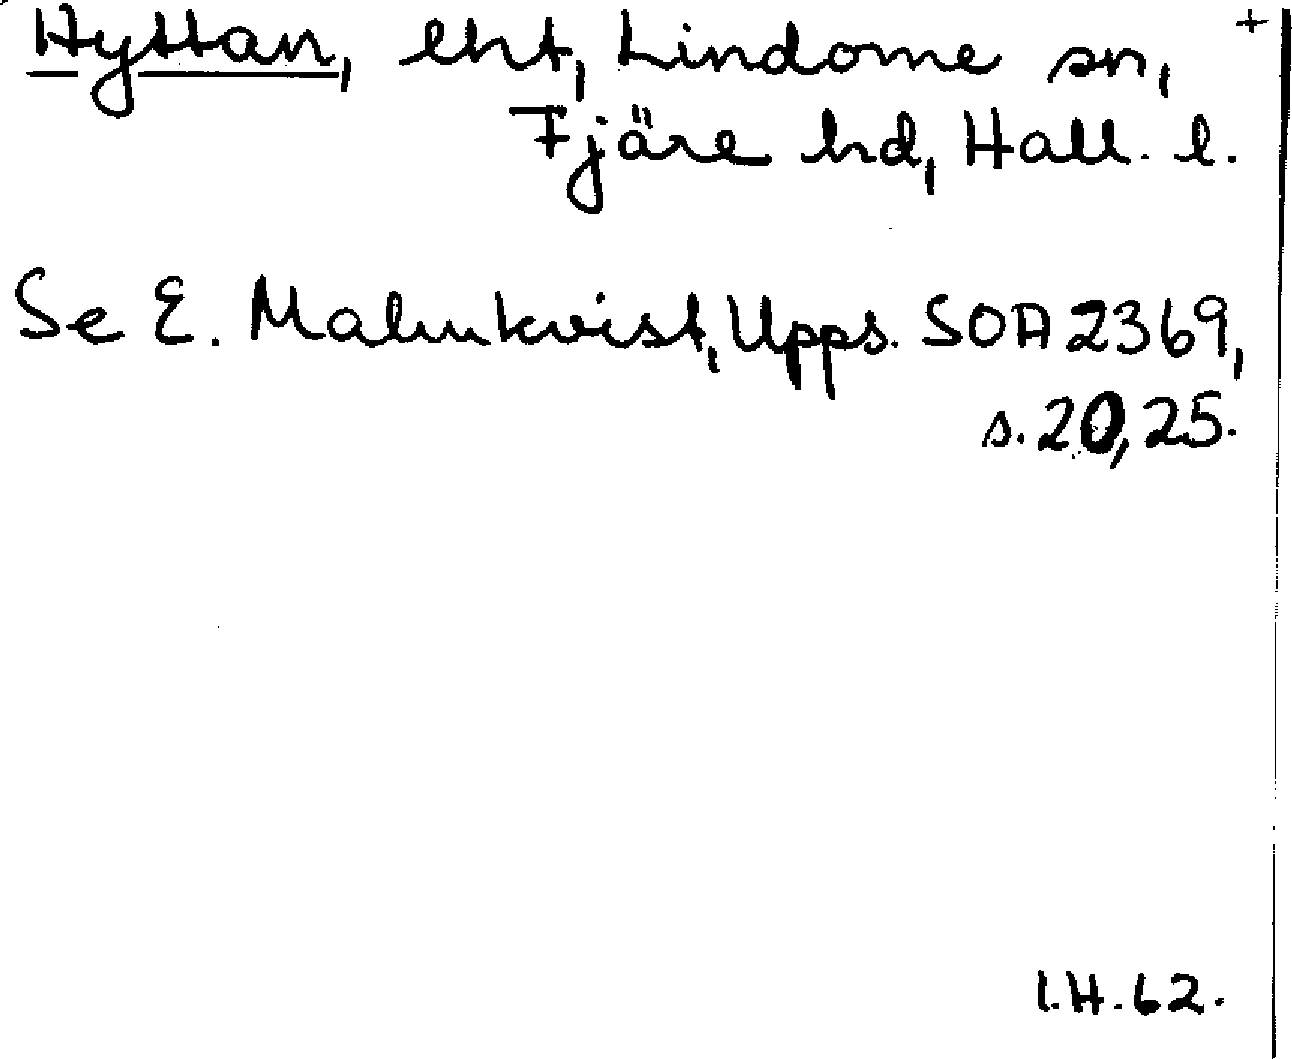 Hyttan, lht, Lindome sn, +
Fjäre hd, Hall. l.
Se E. Malmkvist, Upps. SOA 2369,
s. 20, 25.
I.H. 62.